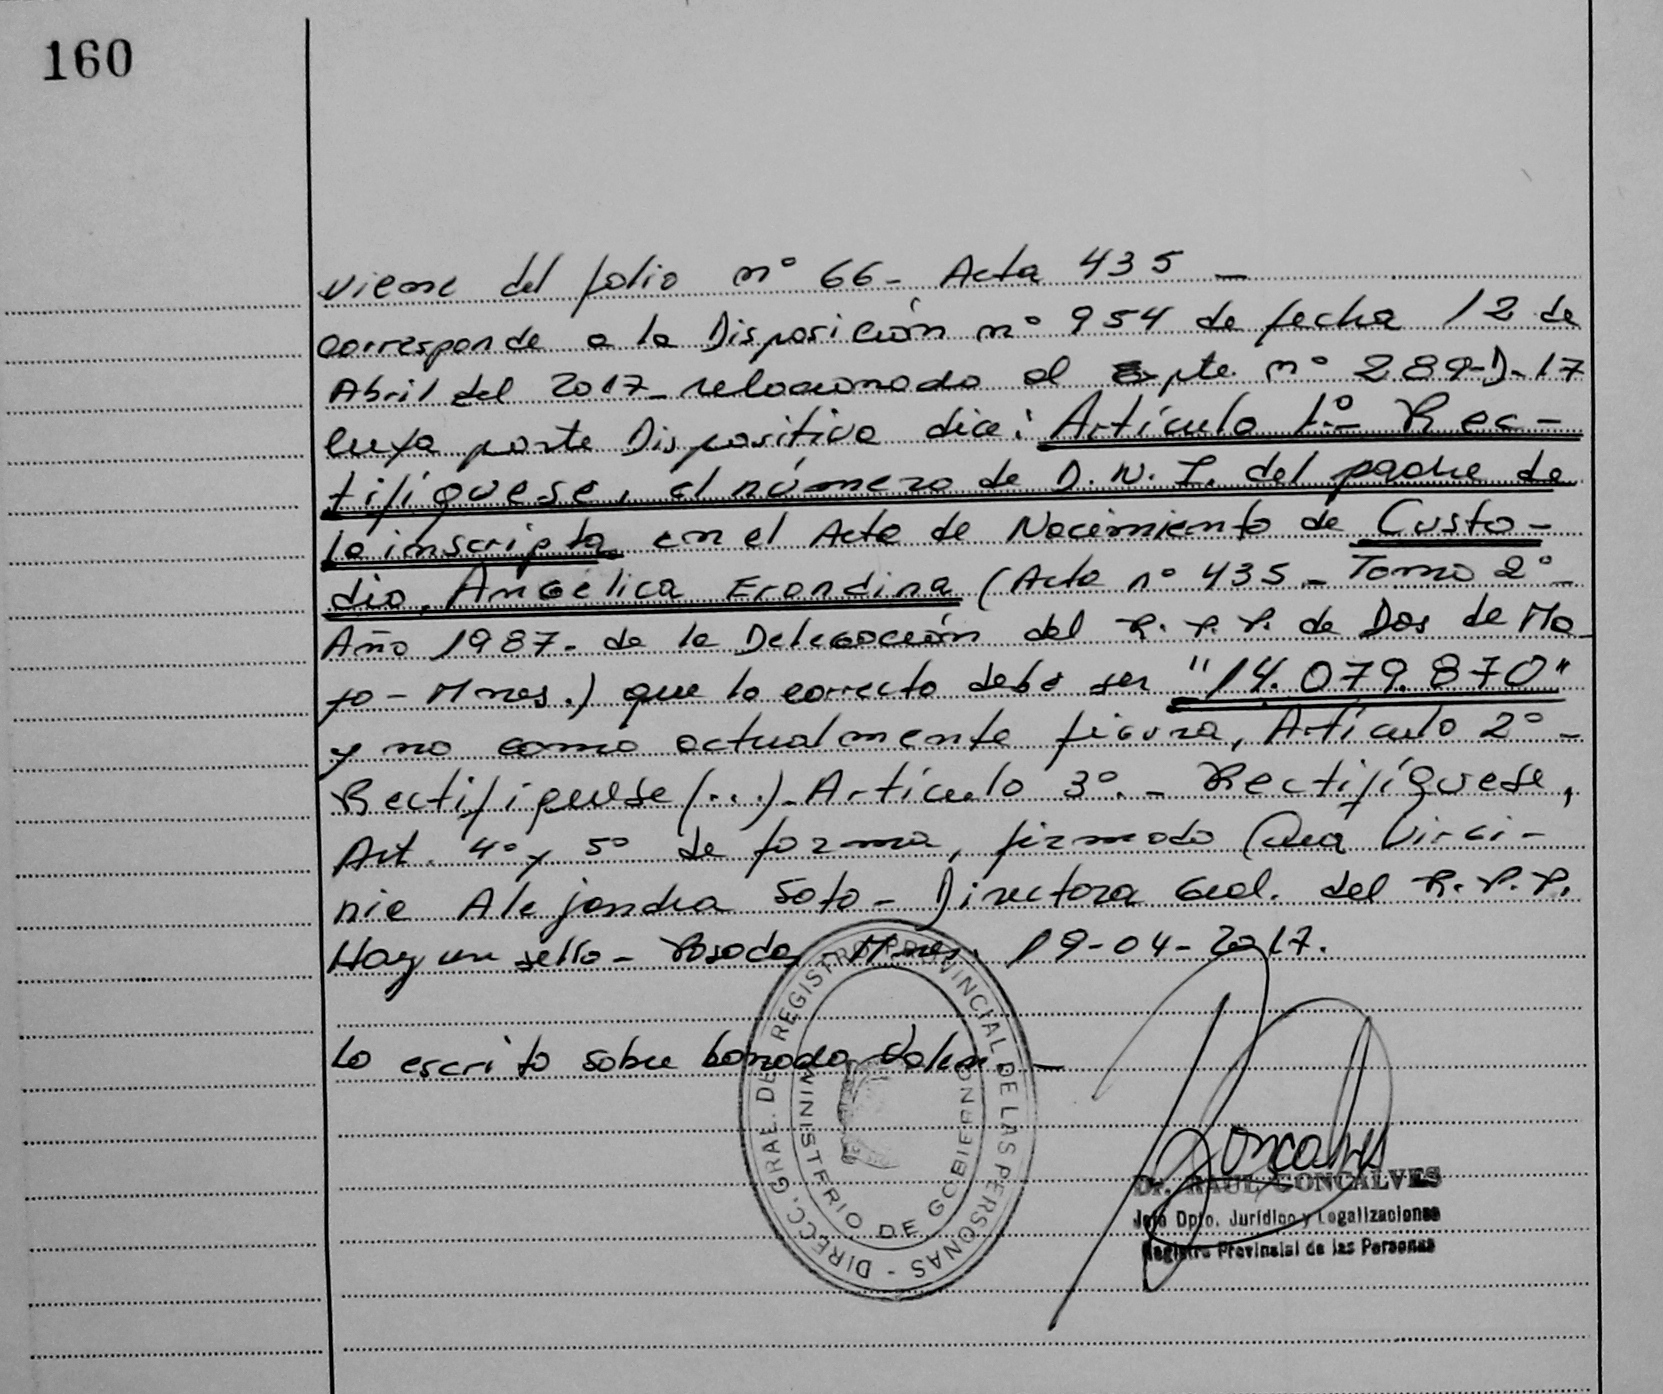 160
viene del folio nº 66- Acta 435 -
corresponde a la Disposición nº 954 de fecha 12 de
Abril del 2017- relacionado al Expte nº 289-D-17
cuya parte Dispositiva dice: Artículo 1º- Rec-
tifíquese, el número de D.N.I. del padre de
la inscripta en el Acta de Nacimiento de Custo-
dio, Angélica Erondina (Acta nº 435- Tomo 2º-
Año 1987- de la Delegación del R.P.P. de Dos de Ma-
yo- Mnes.) que lo correcto debe ser "14.079.870"
y no como actualmente figura, Artículo 2º-
Rectifíquese (...)- Artículo 3º.- Rectifíquese,
Art. 4º y 5º de forma, firmado Virgi-
nia Alejandra Soto- Directora Gral. del R.P.P.
Hay un sello- Posadas, Mnes, 19-04-2017.
Lo escrito sobre borrado, Valen.-
DIRECC. GRAL. DE REGISTRO PROVINCIAL DE LAS PERSONAS -
MINISTERIO DE GOBIERNO
Goncalves
Dr. RAUL GONCALVES
Jefe Dpto. Jurídico y Legalizaciones
Registro Provincial de las Personas